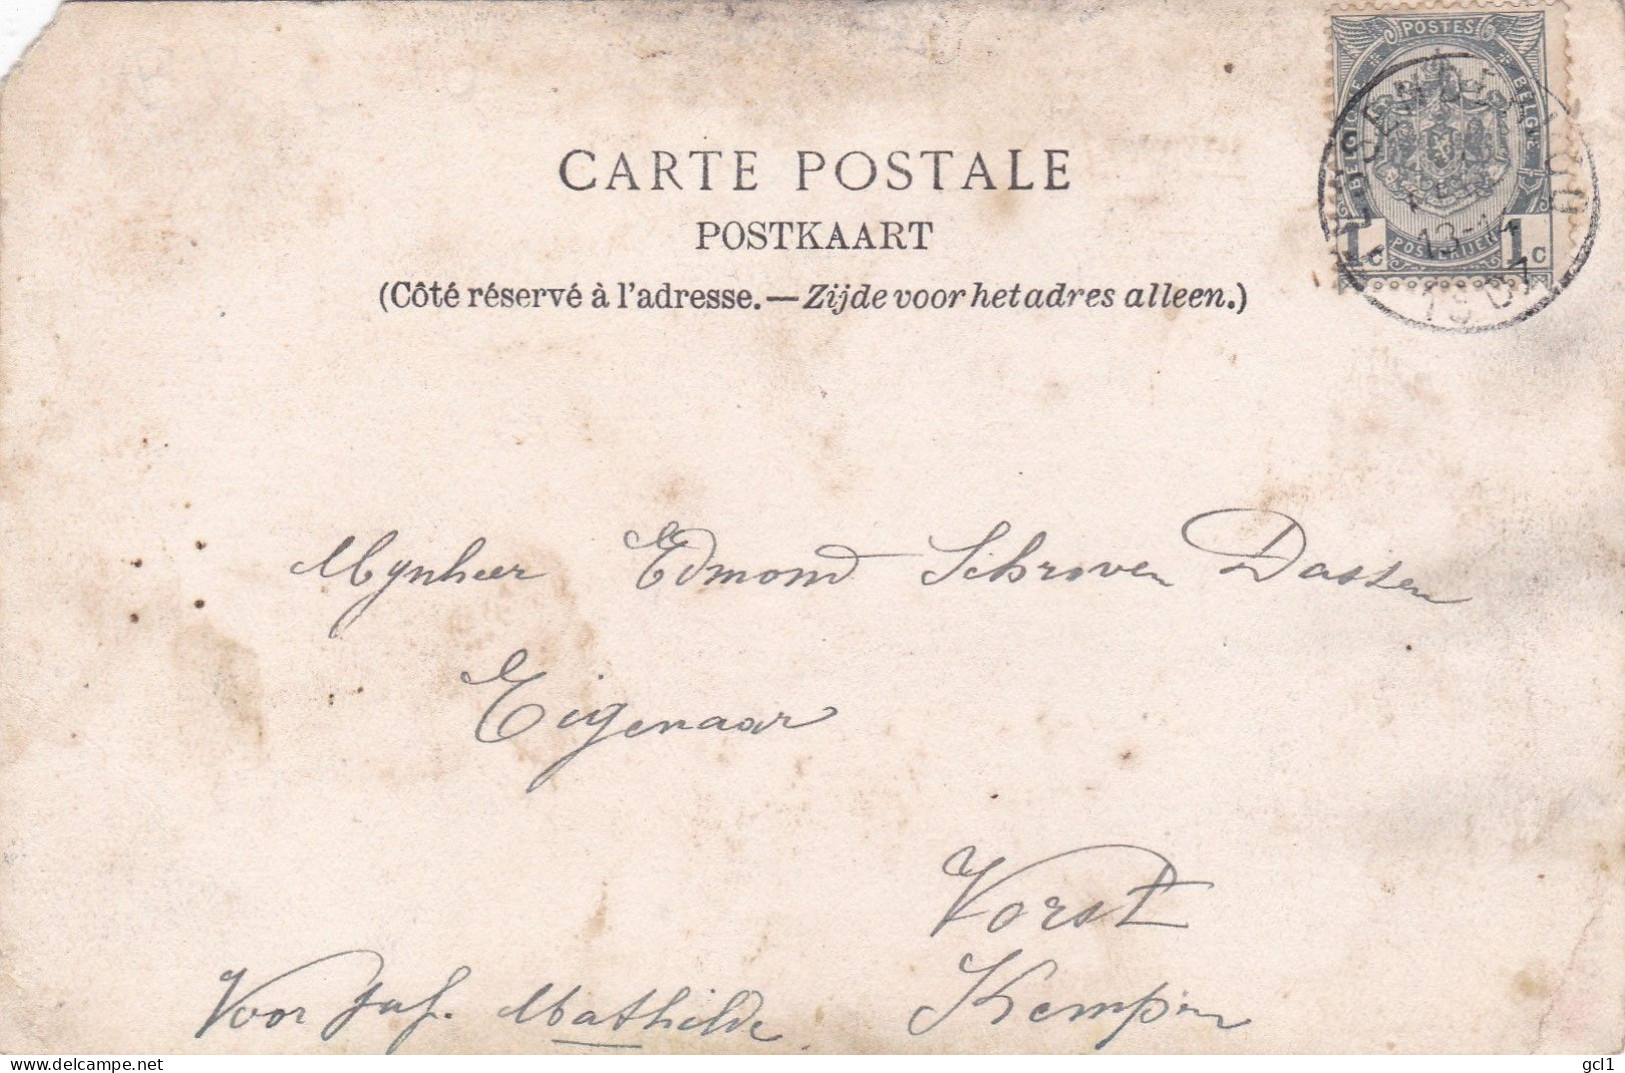 POSTES
BELGIQUE
BELGIË
1 c
1 c
13-4
1907
CARTE POSTALE
POSTKAART
(Côté réservé à l'adresse.—Zijde voor het adres alleen.)
Mynheer Edmond Schroven Dassen
Eigenaar
Vorst
Kempen
Voor Juf. Mathilde
gcl1